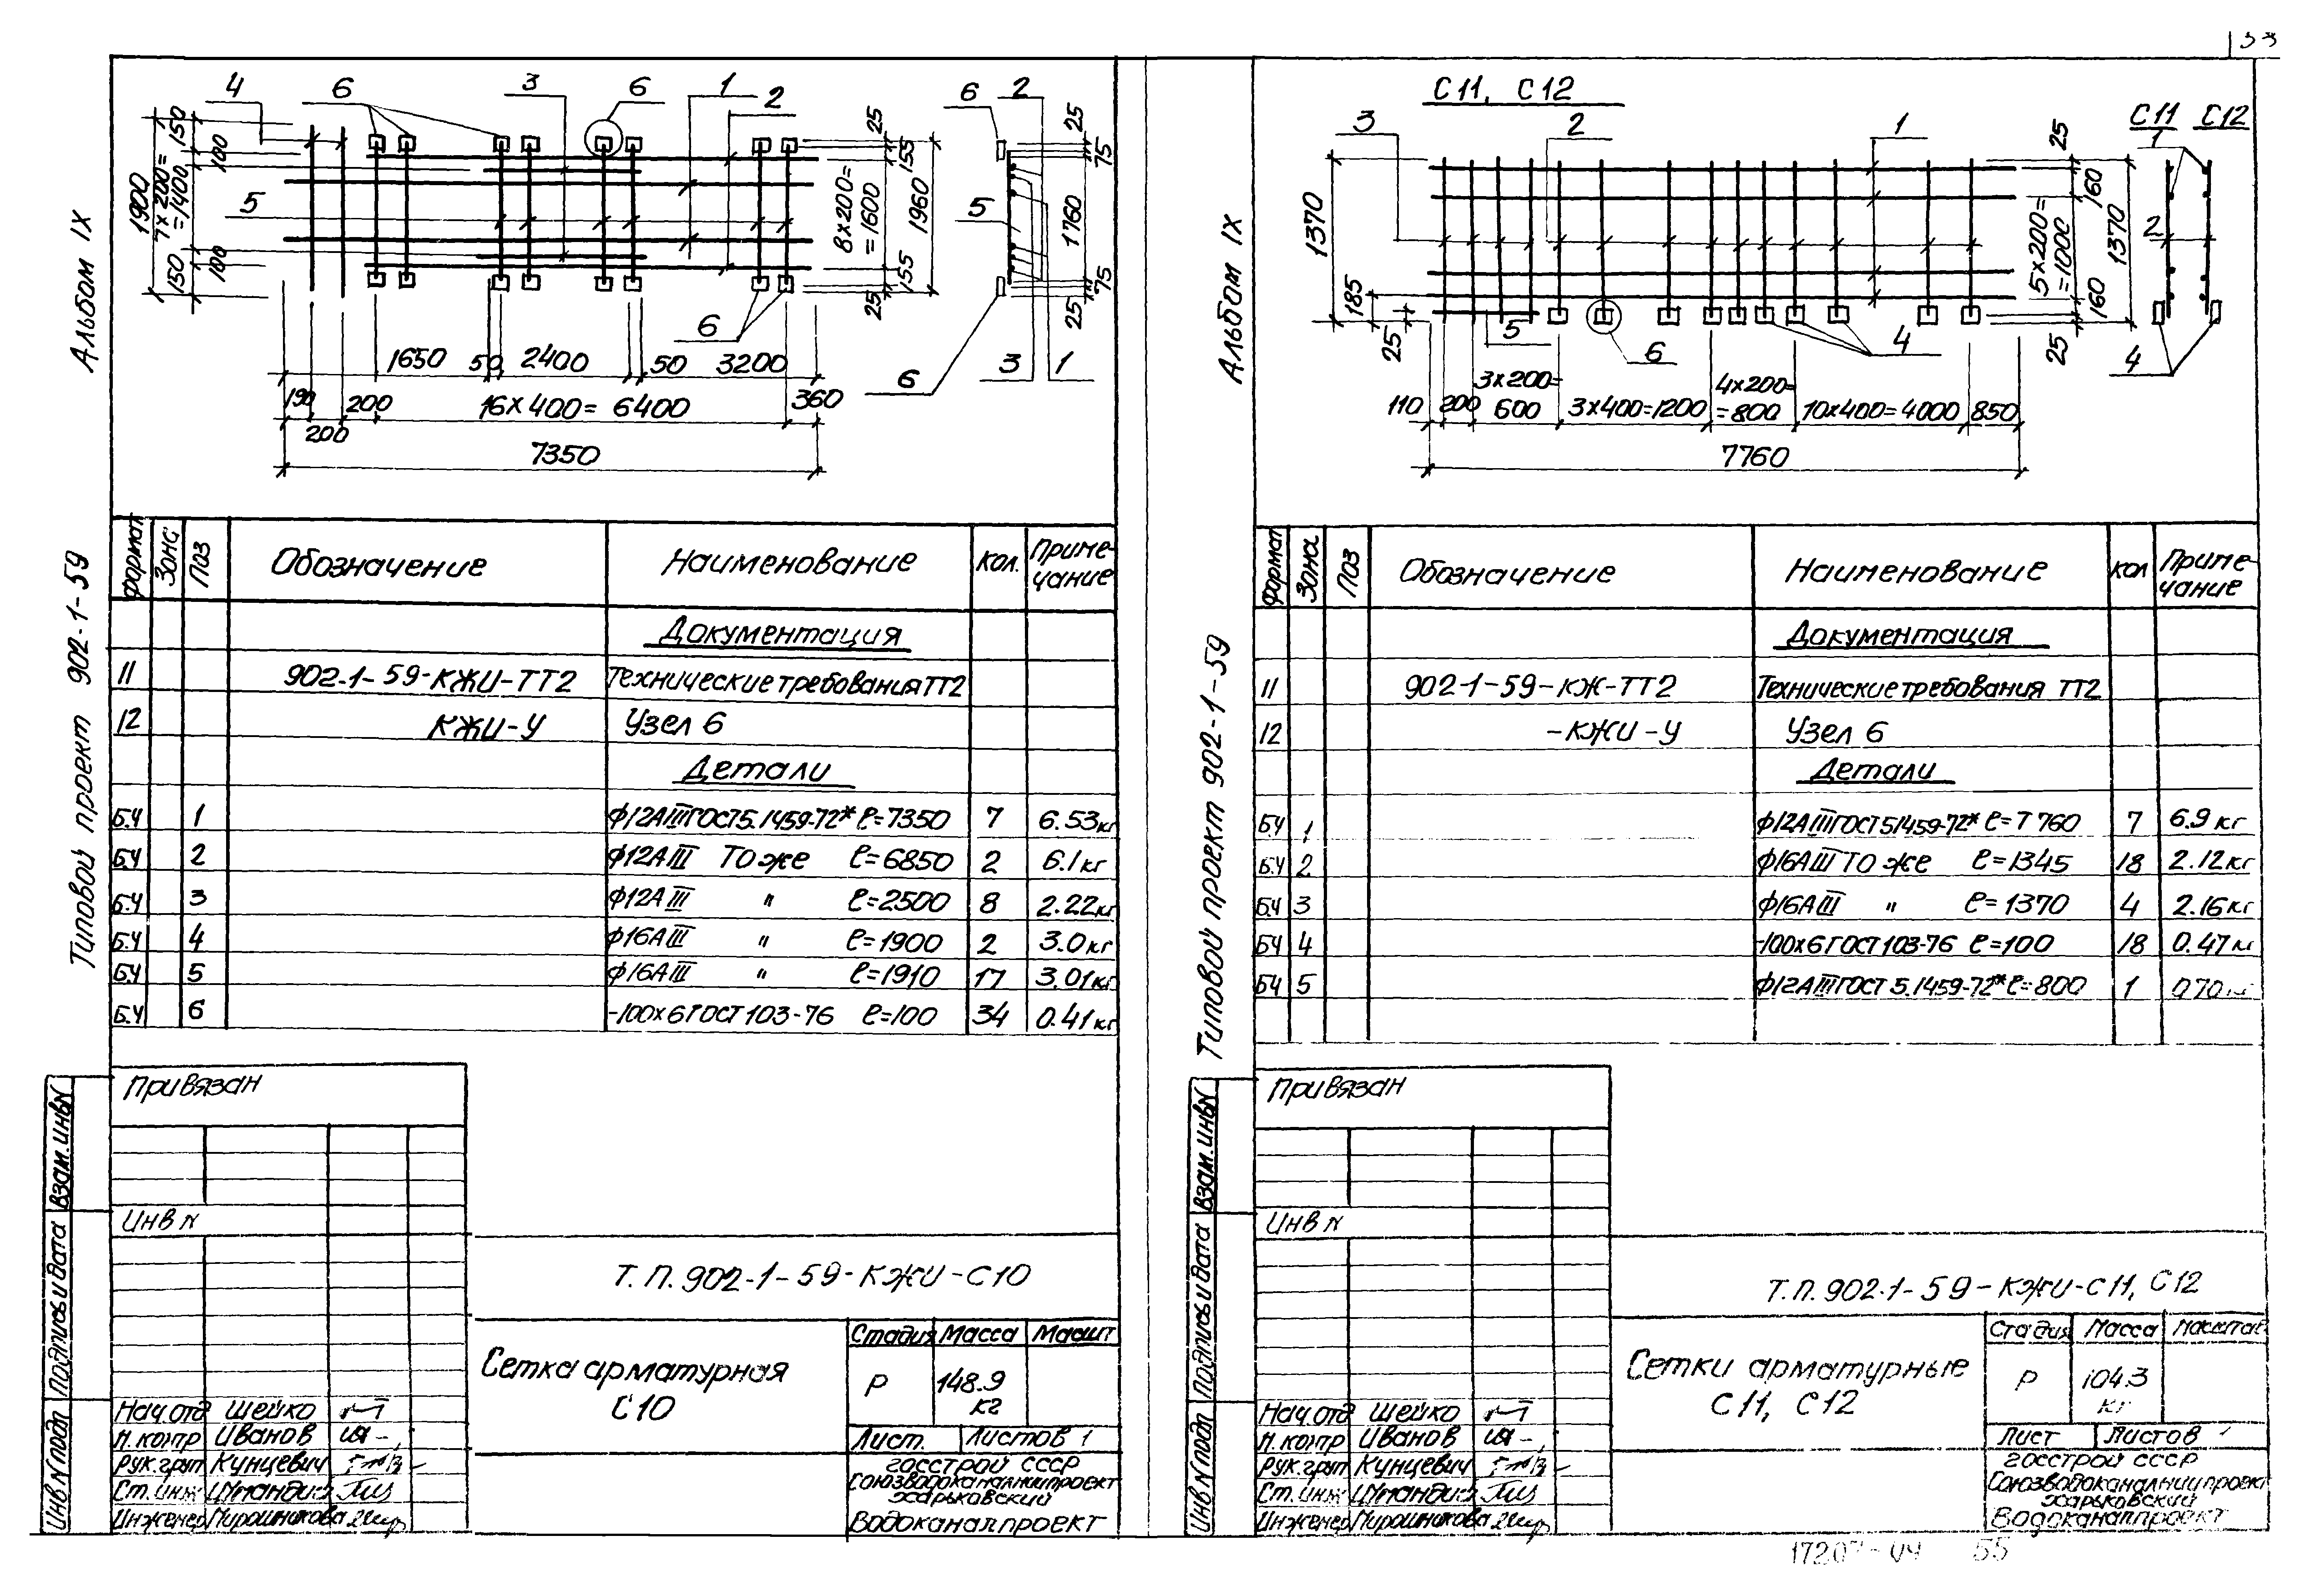 Альбом IX
Типовой проект 902-1-59
4
6
3
6
1
2
6
2
5
5
6
6
3
1
1900
150
7×200=
=1400
150
100
100
25
155
8×200=
=1600
1960
155
25
25
75
1760
75
25
1650
50
2400
50
3200
190
200
16×400=6400
360
200
7350
Формат
Зона
Поз
Обозначение
Наименование
Кол.
Приме-
чание
Документация
11 902-1-59-КЖИ-ТТ2 Технические требования ТТ2
12 КЖИ-У Узел 6
Детали
Б.Ч 1 ф12АIII ГОСТ 5.1459-72* ℓ=7350 7 6.53кг
Б.Ч 2 ф12АIII То же ℓ=6850 2 6.1кг
Б.Ч 3 ф12АIII " ℓ=2500 8 2.22кг
Б.Ч 4 ф16АIII " ℓ=1900 2 3.0кг
Б.Ч 5 ф16АIII " ℓ=1910 17 3.01кг
Б.Ч 6 -100×6 ГОСТ 103-76 ℓ=100 34 0.41кг
Привязан
Инв N
Взам.инвN
Подпись и дата
Инв N подл
Т.П.902-1-59-КЖИ-С10
Сетка арматурная
С10
Стадия Масса Масшт
Р 148.9
кг
Лист. Листов 1
Госстрой СССР
Союзводоканалниипроект
Харьковский
Водоканалпроект
Нач.отд Шейко
Н.контр Иванов
Рук.груп Кунцевич
Ст.инж
Инженер
Альбом IX
Типовой проект 902-1-59
С11, С12
С11 С12
3
2
1
1
2
5
6
4
4
1370
185
25
25
160
5×200=
=1000
1370
160
25
110
200
3×200=
600
3×400=1200
4×200=
=800
10×400=4000
850
7760
Формат
Зона
Поз
Обозначение
Наименование
Кол
Приме-
чание
Документация
11 902-1-59-КЖ-ТТ2 Технические требования ТТ2
12 -КЖИ-У Узел 6
Детали
БЧ 1 ф12АIII ГОСТ 5.1459-72* ℓ=7760 7 6.9кг
Б.Ч 2 ф16АIII То же ℓ=1345 18 2.12кг
Б.Ч 3 ф16АIII " ℓ=1370 4 2.16кг
БЧ 4 -100×6 ГОСТ 103-76 ℓ=100 18 0.47кг
БЧ 5 ф12АIII ГОСТ 5.1459-72* ℓ=800 1 0.70
Привязан
Инв N
Взам.инвN
Подпись и дата
Инв N подл
Т.П.902-1-59-КЖИ-С11, С12
Сетки арматурные
С11, С12
Стадия Масса Масштаб
Р 104.3
кг
Лист Листов 1
Госстрой СССР
Союзводоканалниипроект
Харьковский
Водоканалпроект
Нач.отд Шейко
Н.контр Иванов
Рук.груп Кунцевич
Ст.инж
Инженер
55